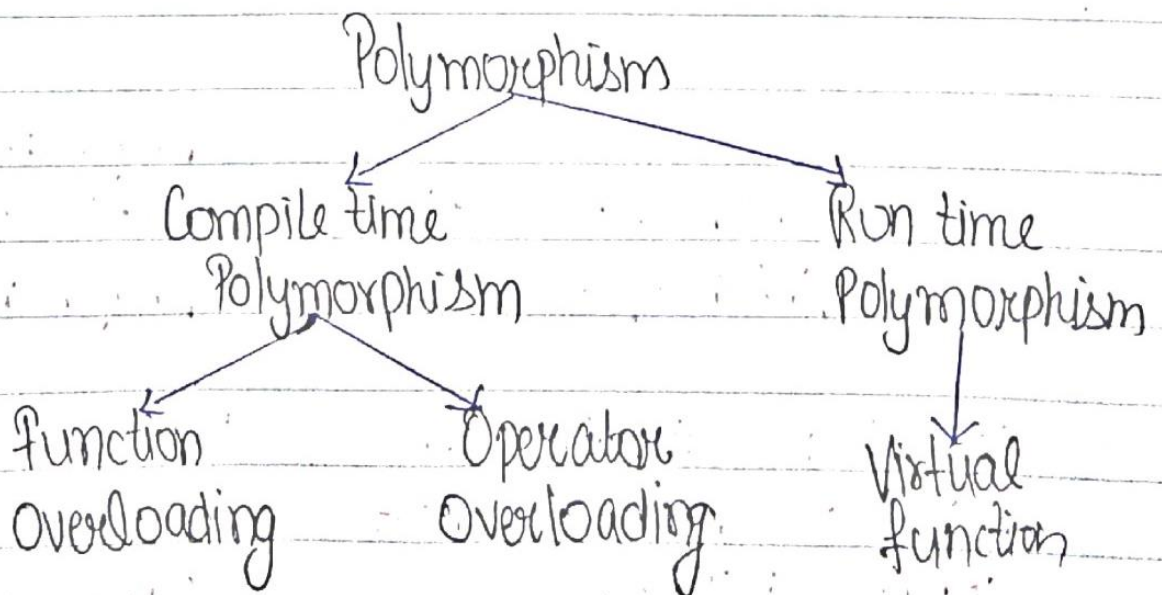 Polymorphism
Compile time
Polymorphism
Run time
Polymorphism
function
overloading
Operator
Overloading
Virtual
function